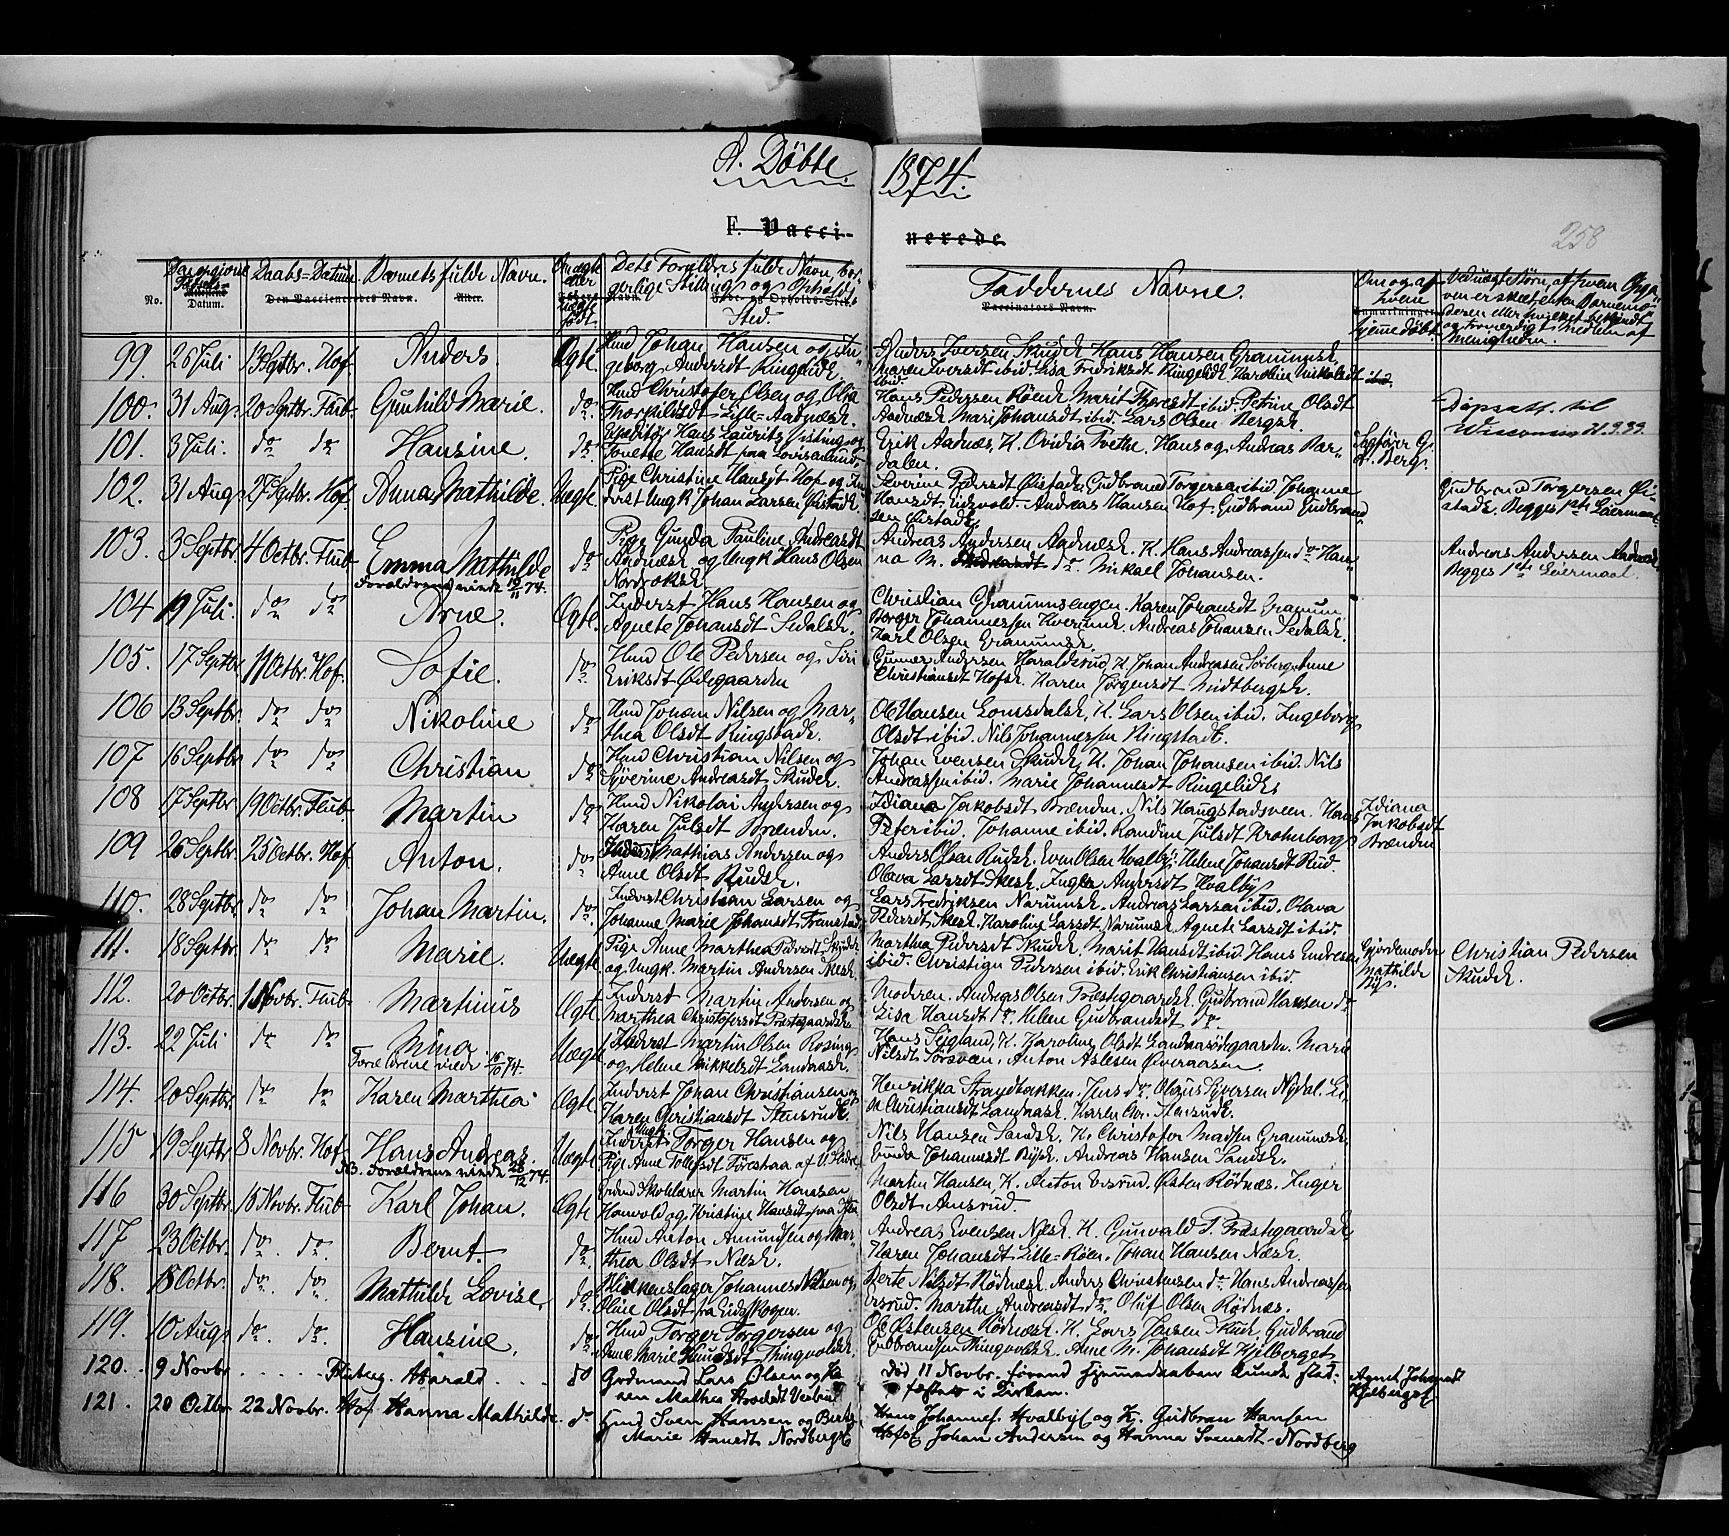 A. Döbte 1874.
F. Vacci- nerede
258
Den opgivne Fødsels- Datum.
Daabs-Datum
Barnets fulde Navn.
Om ægte eller uægte født
Dets Forældres fulde Navn, borgerlige Stilling og Opholds Sted.
Faddernes Navne.
Om og af hvem hjemmedøbt
No.
Den Vaccineredes Navn.
Alter.
Vaccinators Navn.
99. 26 Juli 13 Septbr. Hof Anders Ægte. Hmd Johan Hansen og In-
geborg Andersdt Ringelidsk.
Anders Iversen Skudsk. Hans Hansen Granumsk.
Maren Iversdt ibid. Lisa Fredriksdt Ringelidsk. Karoline Nikolsdt ibid.
100. 31 Aug. 20 Septbr. Flub- Gunhild Marie. do Hmd Christofer Olsen og Olia
Thorkildsdt Lille-Aadnæsk.
Hans Pedersen Röensk. Marit Thoresdt ibid. Petrine Olsdt
Aadnæsk. Mari Johansdt ibid. Lars Olsen Bergsk.
Döpsatt. til
Wisconsin 21.9.39.
101. 3 Juli. do do Hansine. do Hans Laurits
Tonette Hansdt paa Lovisenlund
Erik Aadnæs, K. Ovidia Tvethe. Hans og Andreas Bar-
dalen.
Berg.
102. 31 Aug. 27 Septbr. Hof. Anna Mathilde. Uægte Pige Christine Hansdt Hof og In-
derst Ungk. Johan Larsen Öistadsk.
Severine Pedersdt Öistadsk. Gudbrand Torgersen ibid. Johanne
Hansdt Eidsvold. Andreas Hansen Hof. Gudbrand Gudbrand-
sen Öistadsk.
Gudbrand Torgersen Öi-
stadsk. Begges 1ste Leiermaal.
103. 3 Septbr. 4 Octbr. Flub- Emma Mathilde do Pige Gunda Pauline Andreasdt
Aadnæsk. og Ungk Hans Olsen
Nordroksk.
Forældrene viede 10/11 74.
Andreas Andersen Aadnæsk. K. Hans Andreassen do Han-
na M. do Mikael Johansen.
Andreas Andersen Aadnæsk
Begges 1ste Leiermaal.
104 19 Juli. do do Arne. Ægte. Inderst Hans Hansen og
Agnete Johansdt Sedalsk.
Christian Granumsengen. Karen Johansdt Granum
Borger Johannessen Kverum. Andreas Johansen Sedalsk.
Karl Olsen Granumsk.
105. 17 Septbr. 11 Octbr. Hof. Sofie. do Hmd Ole Pedersen og Siri
Eriksdt Ödegaarden
Gunner Andersen Haraldsrud, K. Johan Andreasen Sörberg. Anne
Christiansdt Hofsk. Karen Jörgensdt Midtbergsk.
106 13 Septbr. do do Nikoline do Hmd Johan Nilsen og Mar-
thea Olsdt Ringstadsk.
Ole Hansen Lomsdalsk, K. Lars Olsen ibid. Ingeborg
Olsdt ibid. Nils Johannessen Ringstadsk.
107 16 Septbr do do Christian do Hmd Christian Nilsen og
Syverine Andreasdt Skudsk.
Johan Evensen Skudsk, K. Johan Johansen ibid. Nils
Andreassen ibid. Marie Johannesdt Ringelidsk.
108 17 Septbr 19 Octbr. Flub- Martin do Hmd Nikolai Andersen og
Karen Julsdt Brænden.
Idiana Jakobsdt Brænden. Nils Haugstadsveen. Hans
Peter ibid. Johanne ibid. Kandine Julsdt Krohnborg
Idiana
Jakobsdt
Brænden
109 26 Septbr. 25 Octbr. Hof Anton. do Inderst Mathias Andersen og
Anne Olsdt Rudsk.
Anders Olsen Rudsk. Even Olsen Hvalby. Helene Johansdt Rud.
Olava Larsdt Skesk. Inger Andersdt Hvalby
110. 28 Septbr do do Johan Martin. do Inderst Christian Larsen og
Johanne Marie Johansdt Framstad
Lars Fredriksen Narumsk. Andreas Larsen ibid. Olava
Pedersdt Skesk. Karoline Larsdt Narumsk. Agnete Larsdt ibid.
111. 18 Septbr do do Marie. Uægte Pige Anne Marthea Pedersdt Skudsk
og Ungk. Martin Andersen Skesk.
Marthea Pedersdt Skudsk. Marit Hansdt ibid. Hans Endresen
ibid. Christian Pedersen ibid. Erik Christiansen ibid.
Gjordemoder
Mathilde
Christian Pedersen
Skudsk.
112. 20 Octbr. 1 Novbr. Flub- Martinus Ægte Inderst Martin Andersen og
Marthea Christofersdt Præstegaardsk.
Moderen. Andreas Olsen Præstegaardsk. Gudbrand Hansen do
Lisa Hansdt do. Helene Gudbrandsdt do
113. 22 Juli do do Mina Uægte Inderst Martin Olsen Rosing
og Helene Mikkelsdt Landaask.
Forældrene viede 16/10 74.
Hans Sigland, K. Karoline Olsdt Landaasödegaarden. Marie
Nilsdt Forsveen. Anton Aslesen Överaasen.
114. 20 Septbr do do Karen Marthea Ægte. Inderst Johan Christiansen og
Karen Christiansdt Stensrudsk.
Henrikka Strandbakken. Jens do. Olaus Syversen Nydal. Li-
se Christiansdt Landaask. Karen Chr. Stensrudsk.
115 19 Septbr 8 Novbr. Hof Hans Andreas. Uægte Inderst Ungk. Torger Hansen og
Pige Anne Tollefsdt Förestraa af V. Slidre.
NB. Forældrene viede 28/12 74.
Nils Hansen Sandsk. K. Christofer Madsen Granumsk.
Gunda Johannesdt Bysk. Andreas Hansen Sandsk.
116 30 Septbr. 15 Novbr. Flub- Karl Johan. Ægte Skolelærer Martin Hansen
Haavold og Kristine Hansdt
Martin Hansen, K. Anton Evsrud. Östen Rödnæs. Inger
Olsdt Amsrud.
117 23 Octbr. do do Bernt. do Hmd Anton Amundsen og Mar-
thea Olsdt Næsk.
Andreas Evensen Næsk. K. Gunvald P. Præstegaardsk.
Karen Johansdt Lille-Röen. Johan Hansen Næsk.
118. 18 Octbr. do do Mathilde Lovise, do Blikkenslager Johannes Nilsen og
Oline Olsdt fra Eidskogen.
Berte Nilsdt Rödnæsk. Anders Christensen do. Hans Andreassen
Evsrud. Marthe Andreasdt do. Oluf Olsen Rödnæs.
119. 10 Aug. do do Hansine, do Hmd Torger Torgersen og
Anne Marie Knudsdt Thingvoldsk.
Ole Östensen Rödnæsk. K. Lars Jensen Skud, Gudbrand
Gudbrandsen Thingvoldsk. Anne M. Johansdt Kjelberget
120. 9 Novbr Fluberg. Harald. do Grdmand Lars Olsen og Ka-
ren Mathea
Död 11 Novbr. forend Hjemmedaaben kunde stad-
fæstes i Kirken.
Agnet Johansdt
Kjelberget
121. 20 Octbr 22 Novbr. Hof Hanna Mathilde. do Hmd Sven Hansen og Berte
Marie Hansdt Nordbergsk
Hans Johannes. Hvalbysk og K. Gudbran Hansen
Hofsk Johan Andersen og Hanna Svensdt Nordberg